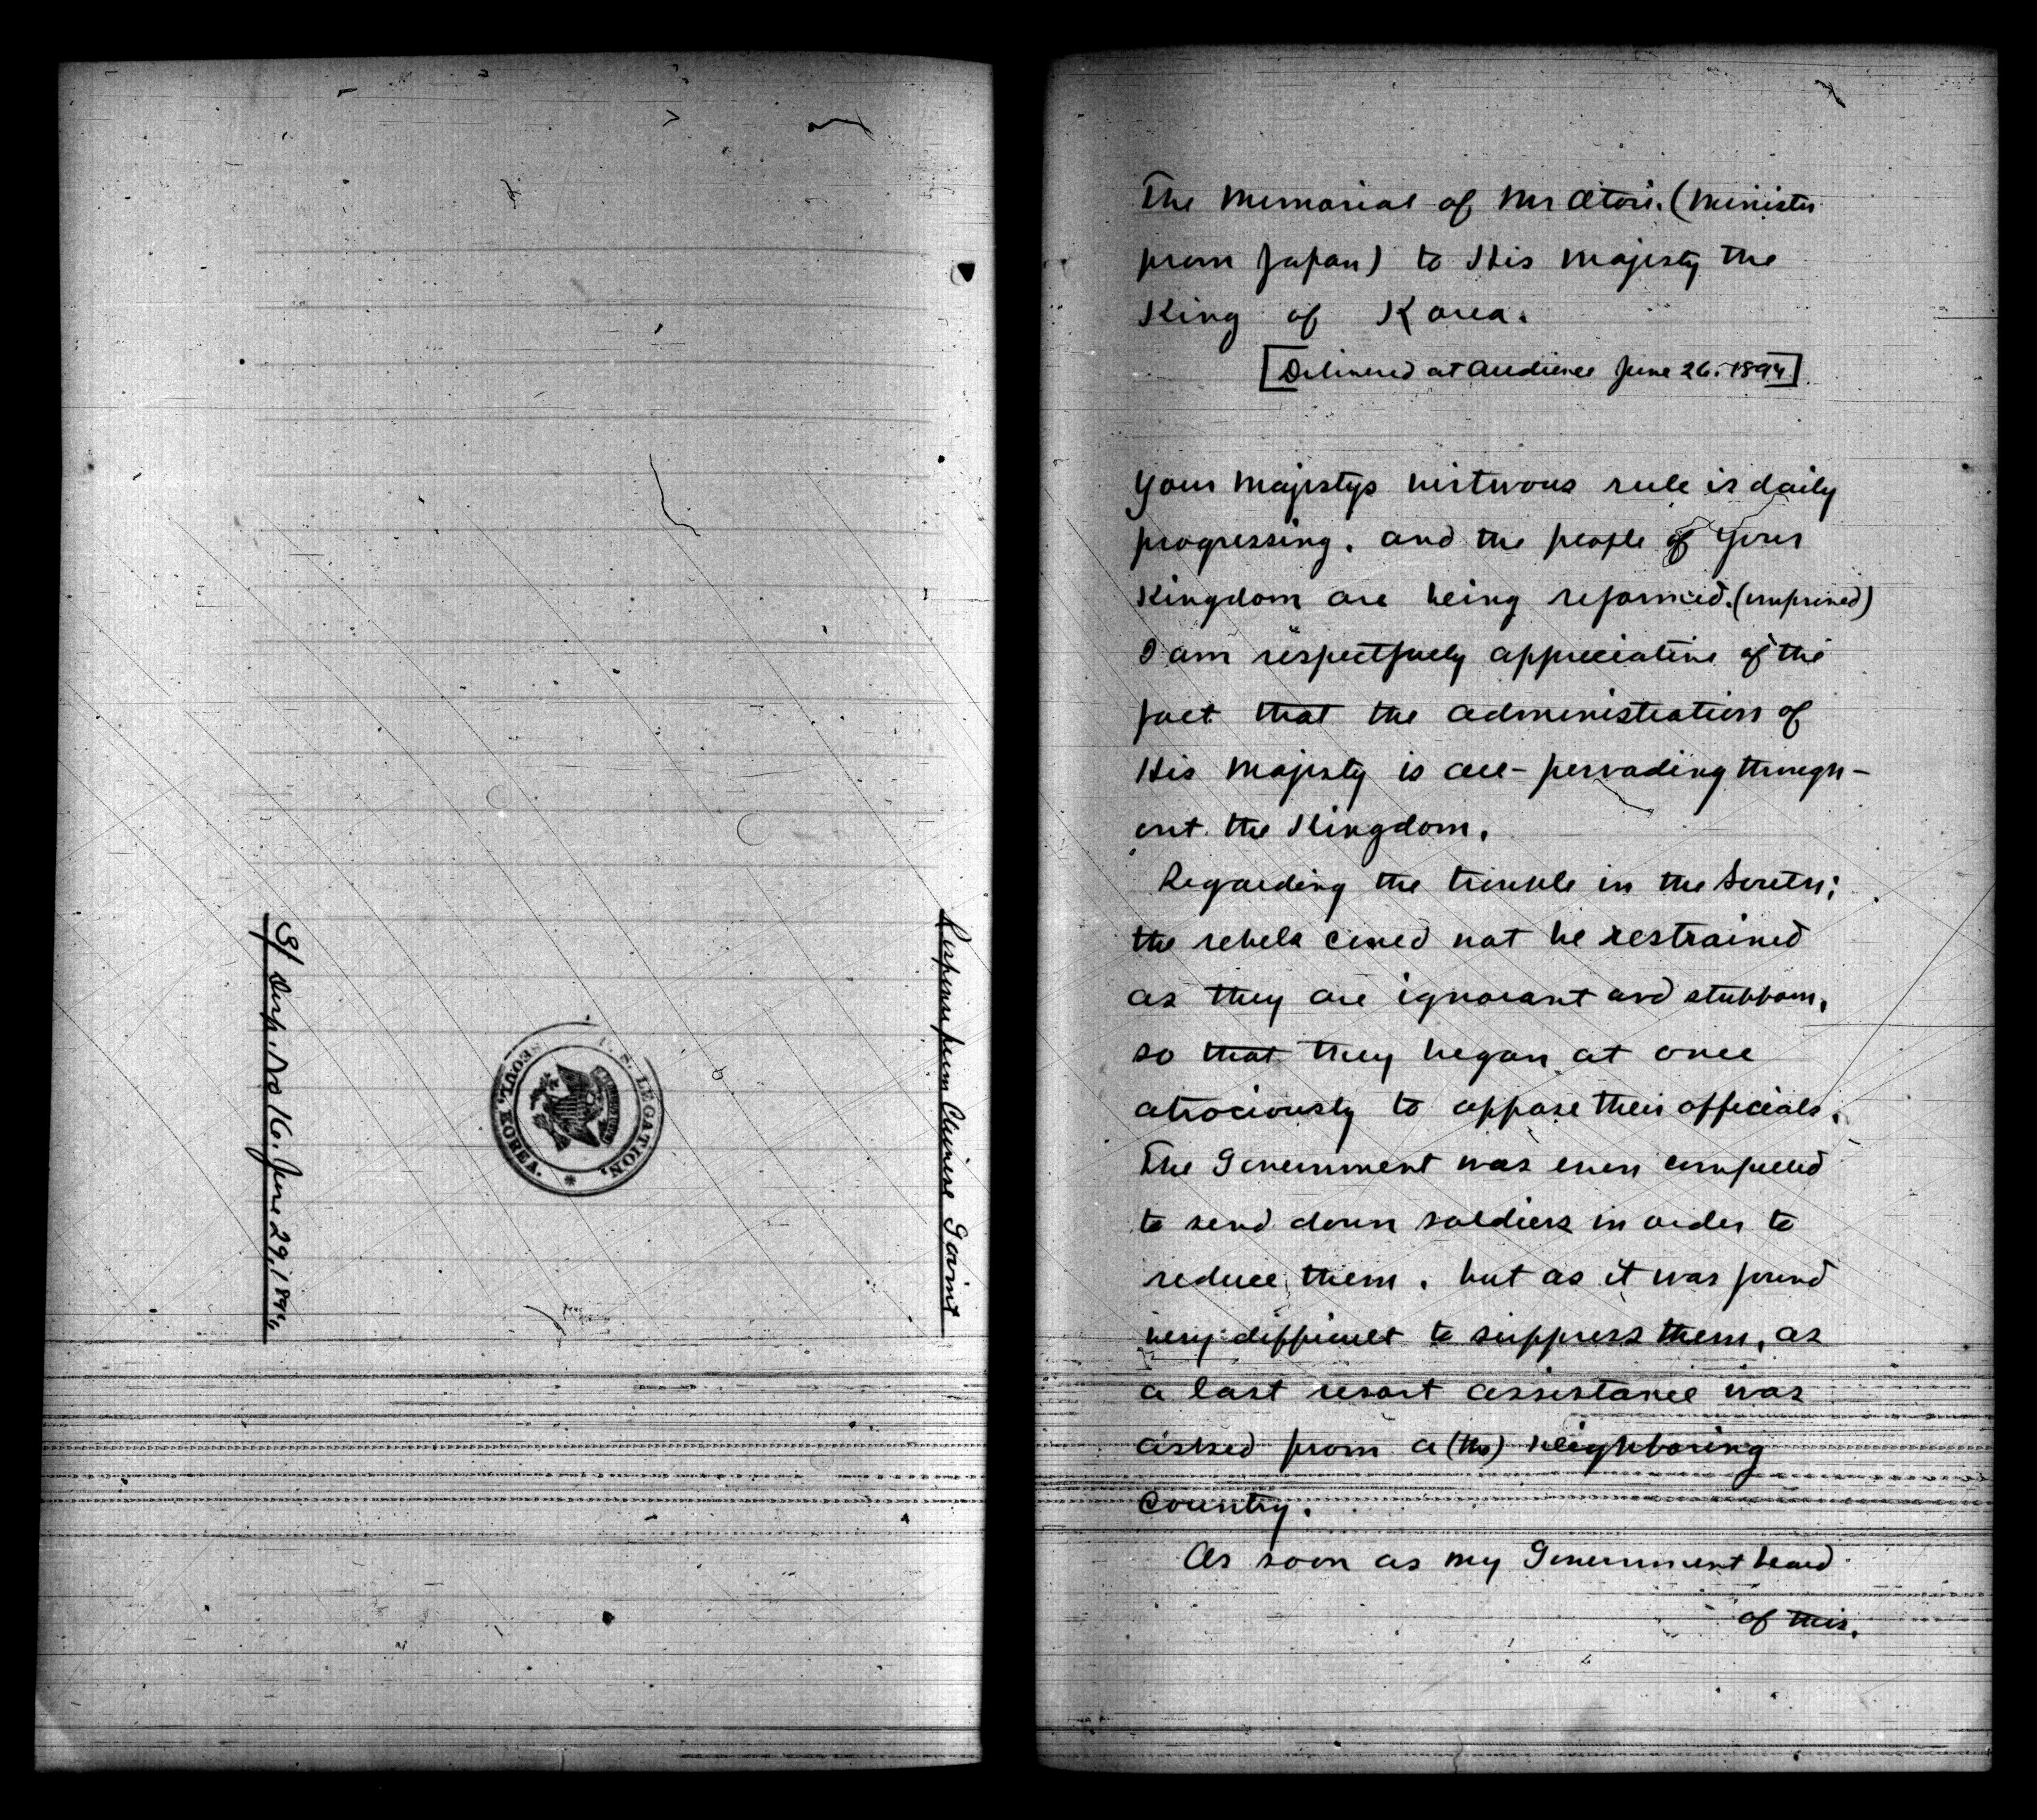 Response from Chinese Govmt
U. S. LEGATION,
SEOUL, KOREA.
Disp. No 16. June 29, 1894
The Memorial of Mr Otori. (Minister
from Japan) to His Majesty the
King of Korea.
[Delivered at Audience June 26. 1894]
Your Majestys virtuous rule is daily
progressing. and the people of Your
Kingdom are being reformed. (improved)
I am respectfully appreciative of the
fact that the administration of
His Majesty is all-pervading through-
out the Kingdom.
Regarding the trouble in the South;
the rebels could not be restrained
as they are ignorant and stubborn,
so that they began at once
atrociously to oppose their officials.
The Government was even compelled
to send down soldiers in order to
reduce them. but as it was found
very difficult to suppress them, as
a last resort assistance was
asked from a (the) neighboring
Country.
As soon as my Government heard
of this.